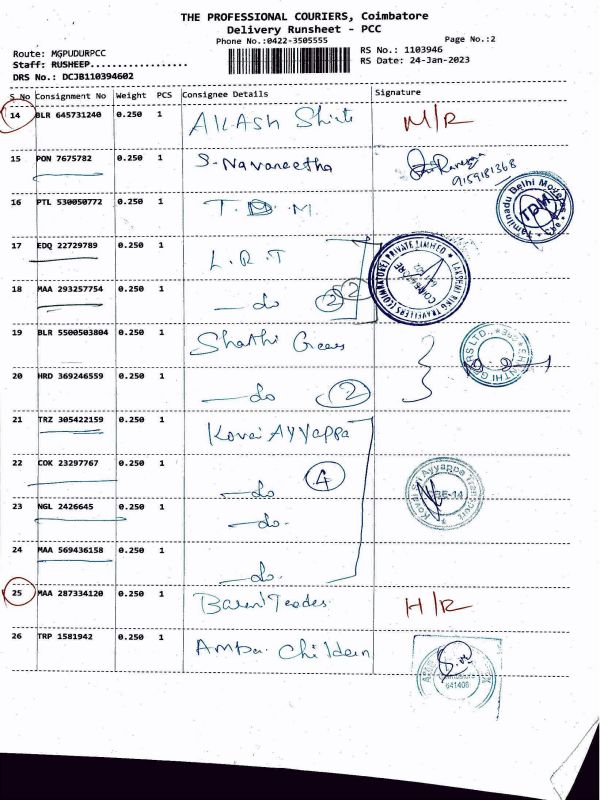 THE PROFESSIONAL COURIERS, Coimbatore
Delivery Runsheet - PCC
Phone No.:0422-3505555
Page No.:2
Route: MGPUDURPCC
RS No.: 1103946
Staff: RUSHEEP..................
RS Date: 24-Jan-2023
DRS No.: DCJB110394602
S No Consignment No Weight PCS Consignee Details Signature
14 BLR 645731240 0.250 1 AKASH M/R
15 PON 7675782 0.250 1 S. Navaneetha 9159181368
16 PTL 530050772 0.250 1 T.D.M. Tamilnadu Delhi TDM
17 EDQ 22729789 0.250 1 L.R.T
18 MAA 293257754 0.250 1 do 2 2 LAKSHMI RING TRAVELLERS (COIMBATORE) PRIVATE LIMITED
19 BLR 5500503804 0.250 1 Shathi Gears SHANTHI GEARS LTD.
20 HRD 369246559 0.250 1 do 2
21 TRZ 305422159 0.250 1 Kovai Ayyappa
22 COK 23297767 0.250 1 do 4 Kovai Sri Ayyappa Transport
23 NGL 2426645 0.250 1 do.
24 MAA 569436158 0.250 1 do.
25 MAA 287334120 0.250 1 H/R
26 TRP 1581942 0.250 1 641406